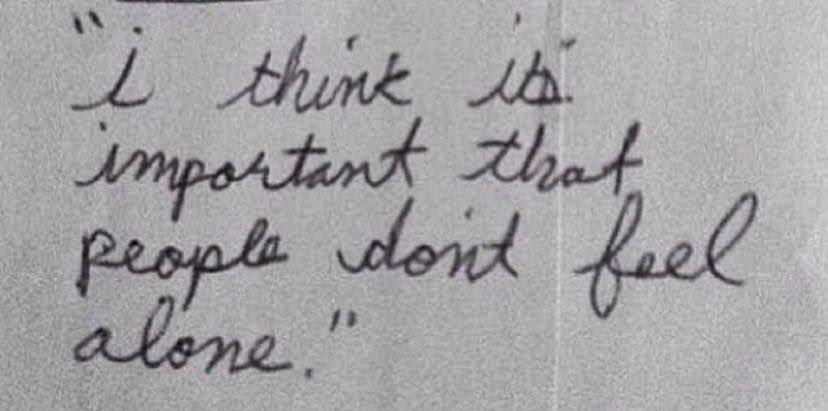 "i think it's
important that
people don't feel
alone."